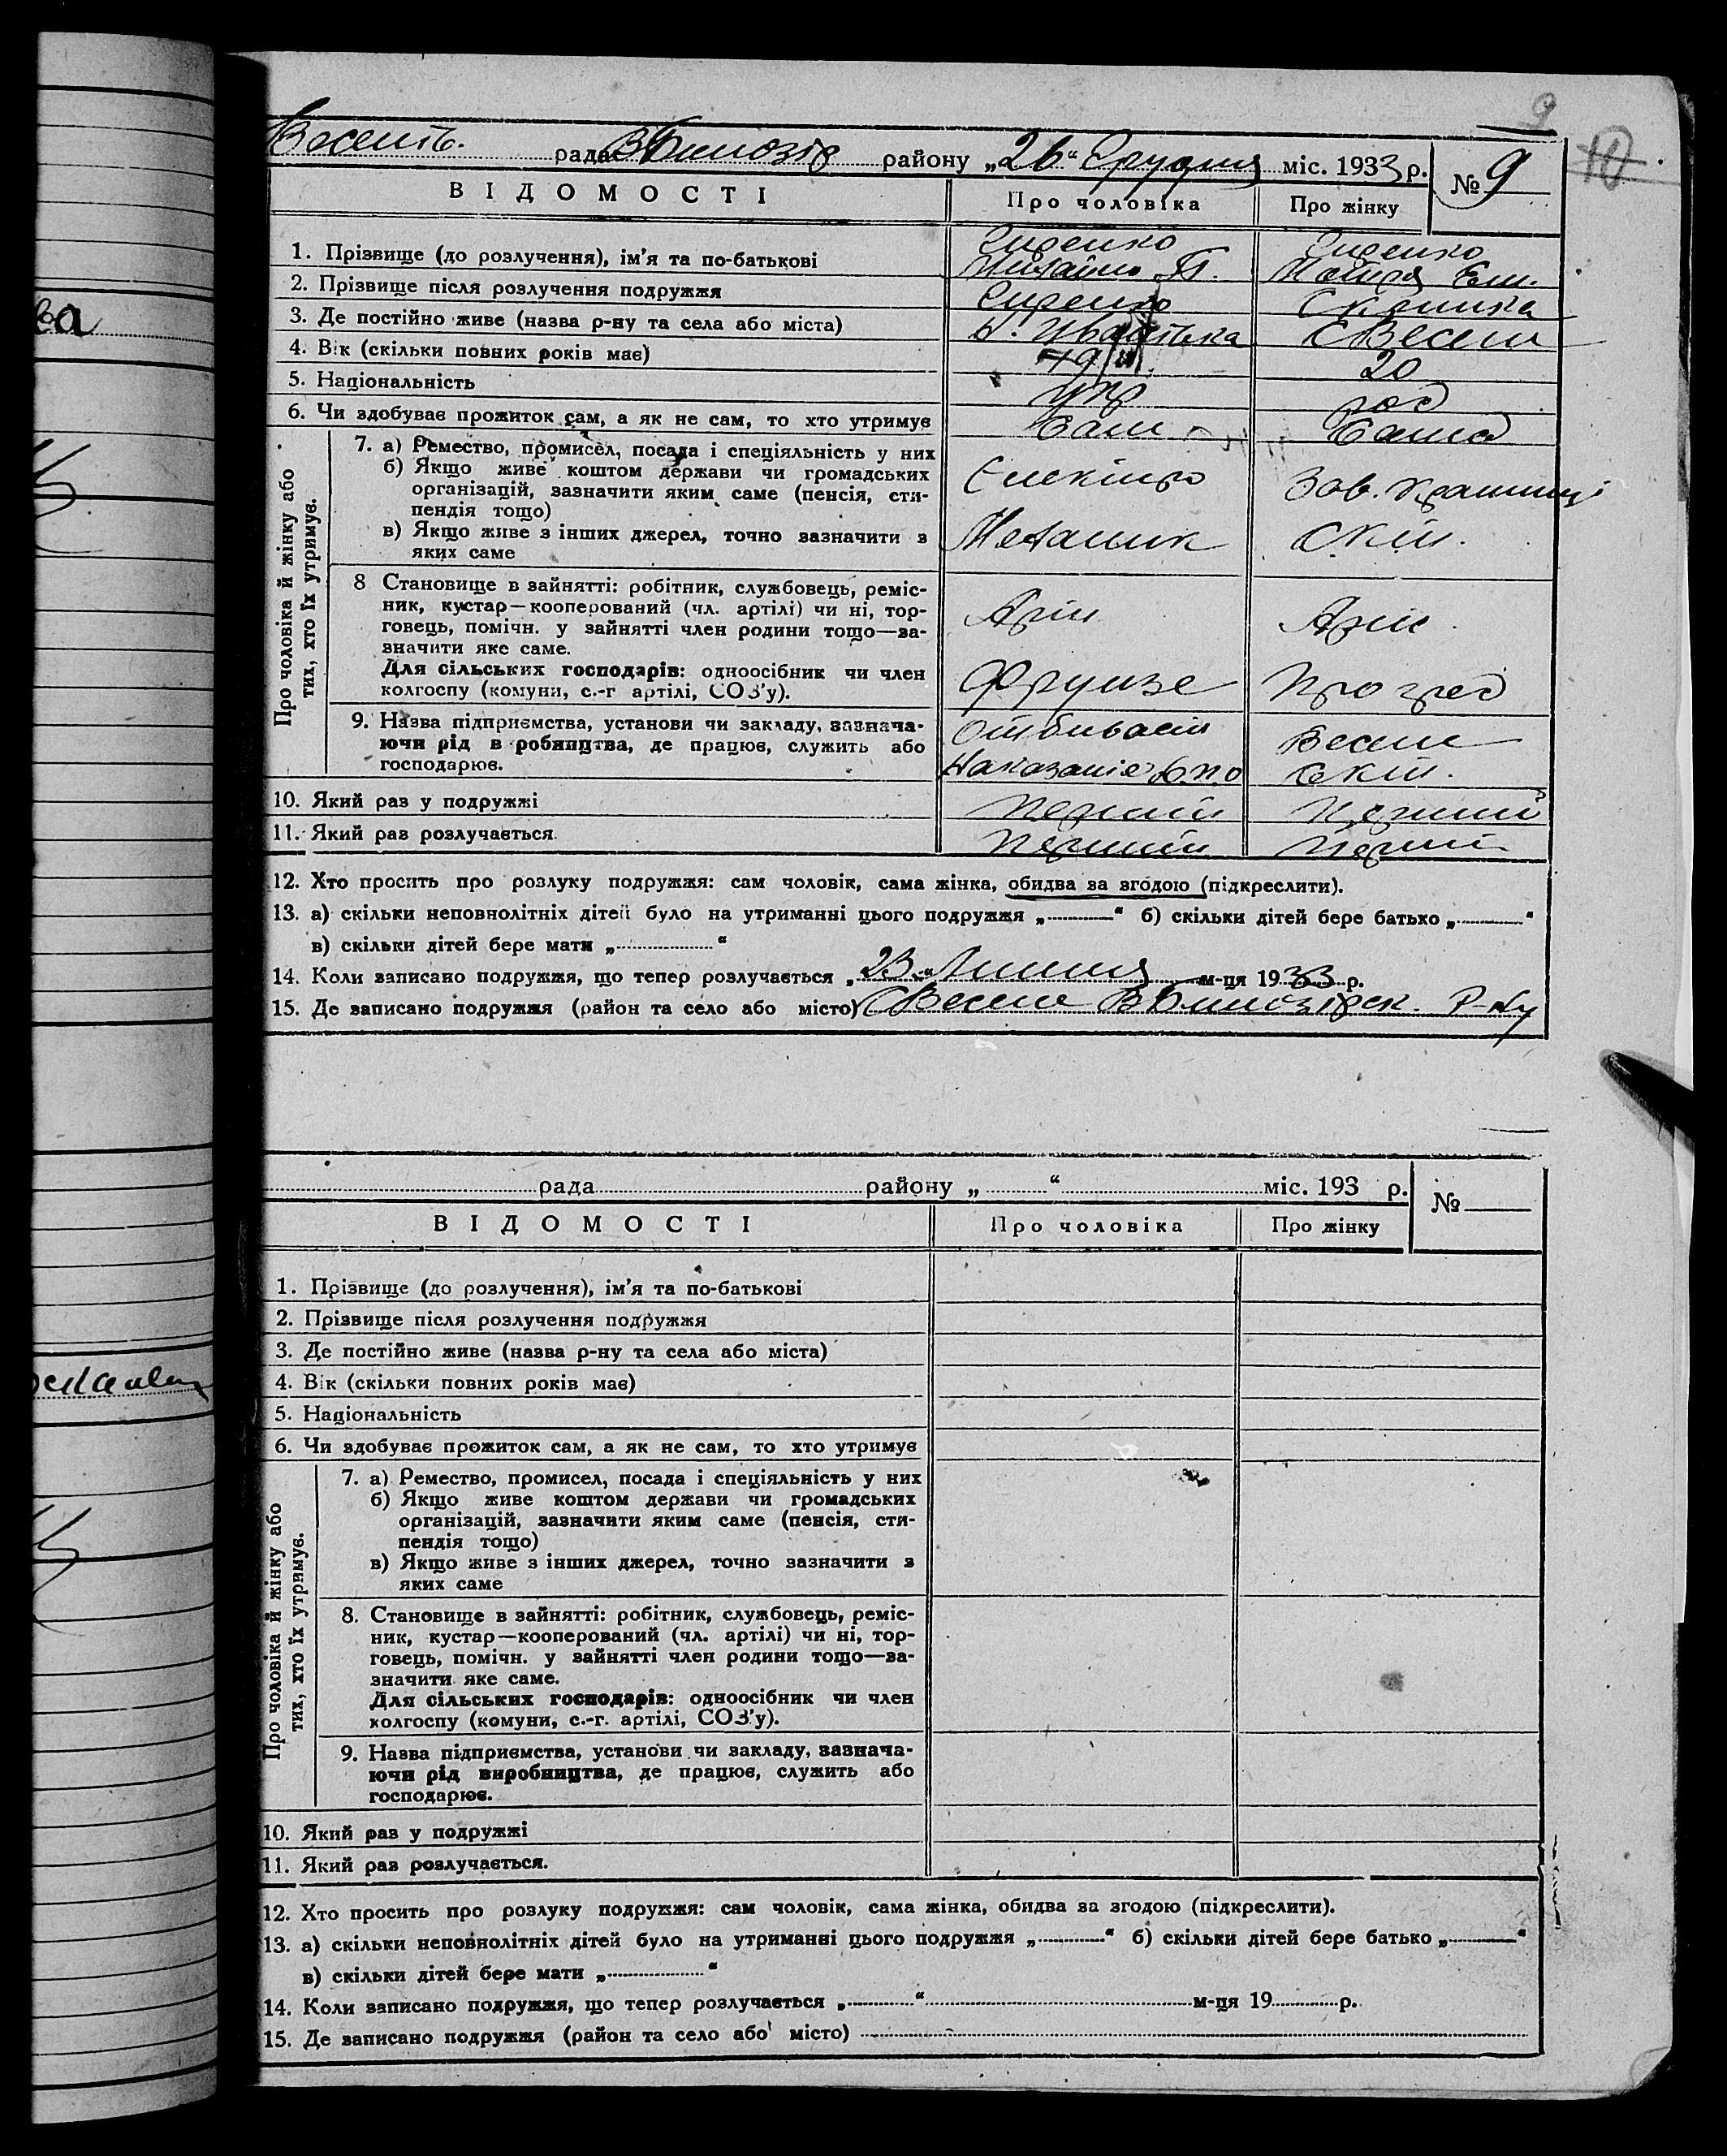 9
10
рада району „26“ Грудня міс. 1933 р. № 9
ВІДОМОСТІ Про чоловіка Про жінку
1. Прізвище (до розлучення), ім'я та по-батькові
2. Прізвище після розлучення подружжя
3. Де постійно живе (назва р-ну та села або міста)
4. Вік (скільки повних років має) 20
5. Національність укр рос
6. Чи здобуває прожиток сам, а як не сам, то хто утримує Сам Сама
Про чоловіка й жінку або тих, хто їх утримує.
7. а) Ремество, промисел, посада і спеціяльність у них
б) Якщо живе коштом держави чи громадських
організацій, зазначити яким саме (пенсія, сти-
пендія тощо)
в) Якщо живе з інших джерел, точно зазначити з
яких саме
Електро Зав.
Механик
8 Становище в зайнятті: робітник, службовець, реміс-
ник, кустар—кооперований (чл. артілі) чи ні, тор-
говець, помічн. у зайнятті член родини тощо—за-
значити яке саме.
Для сільських господарів: одноосібник чи член
колгоспу (комуни, с.-г артілі, СОЗ'у).
Фрунзе Прогрес
9. Назва підприємства, установи чи закладу, зазнача-
ючи рід виробництва, де працює, служить або
господарює.
10. Який раз у подружжі Перший Перший
11. Який раз розлучається. Перший Перший
12. Хто просить про розлуку подружжя: сам чоловік, сама жінка, обидва за згодою (підкреслити).
13. а) скільки неповнолітніх дітей було на утриманні цього подружжя „ “ б) скільки дітей бере батько „ “
в) скільки дітей бере мати „ “
14. Коли записано подружжя, що тепер розлучається „23“ Липня м-ця 1933 р.
15. Де записано подружжя (район та село або місто) Р-ну
рада району „ “ міс. 193 р. №
ВІДОМОСТІ Про чоловіка Про жінку
1. Прізвище (до розлучення), ім'я та по-батькові
2. Прізвище після розлучення подружжя
3. Де постійно живе (назва р-ну та села або міста)
4. Вік (скільки повних років має)
5. Національність
6. Чи здобуває прожиток сам, а як не сам, то хто утримує
Про чоловіка й жінку або тих, хто їх утримує.
7. а) Ремество, промисел, посада і спеціяльність у них
б) Якщо живе коштом держави чи громадських
організацій, зазначити яким саме (пенсія, сти-
пендія тощо)
в) Якщо живе з інших джерел, точно зазначити з
яких саме
8. Становище в зайнятті: робітник, службовець, реміс-
ник, кустар—кооперований (чл. артілі) чи ні, тор-
говець, помічн. у зайнятті член родини тощо—за-
значити яке саме.
Для сільських господарів: одноосібник чи член
колгоспу (комуни, с.-г. артілі, СОЗ'у).
9. Назва підприємства, установи чи закладу, зазнача-
ючи рід виробництва, де працює, служить або
господарює.
10. Який раз у подружжі
11. Який раз розлучається.
12. Хто просить про розлуку подружжя: сам чоловік, сама жінка, обидва за згодою (підкреслити).
13. а) скільки неповнолітніх дітей було на утриманні цього подружжя „ “ б) скільки дітей бере батько „ “
в) скільки дітей бере мати „ “
14. Коли записано подружжя, що тепер розлучається „ “ м-ця 19 р.
15. Де записано подружжя (район та село або місто)